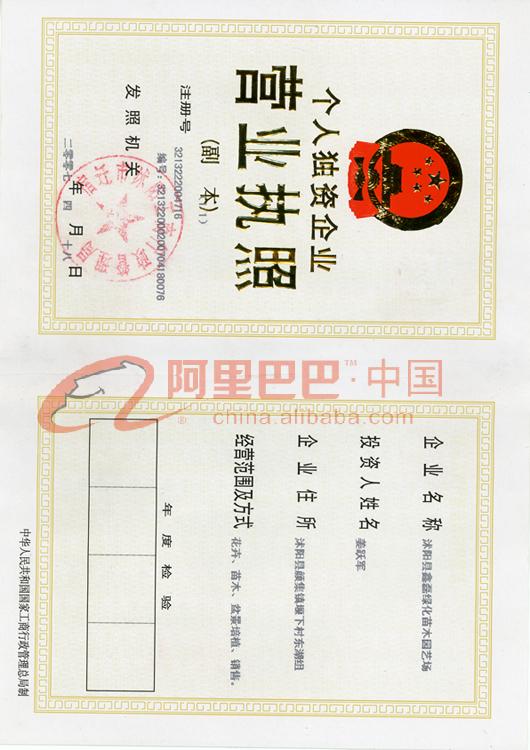 个人独资企业
营业执照
(副 本)(1)
注册号 3213222004716
编号:321322000200704180076
发照机关
二零零七年 四 月 十八 日
阿里巴巴™·中国
china.alibaba.com
企业名称 沭阳县鑫磊绿化苗木园艺场
投资人姓名 姜跃军
企业住所 沭阳县颜集镇堰下村东湖组
经营范围及方式 花卉、苗木、盆景培植、销售。
年度检验
中华人民共和国国家工商行政管理总局制